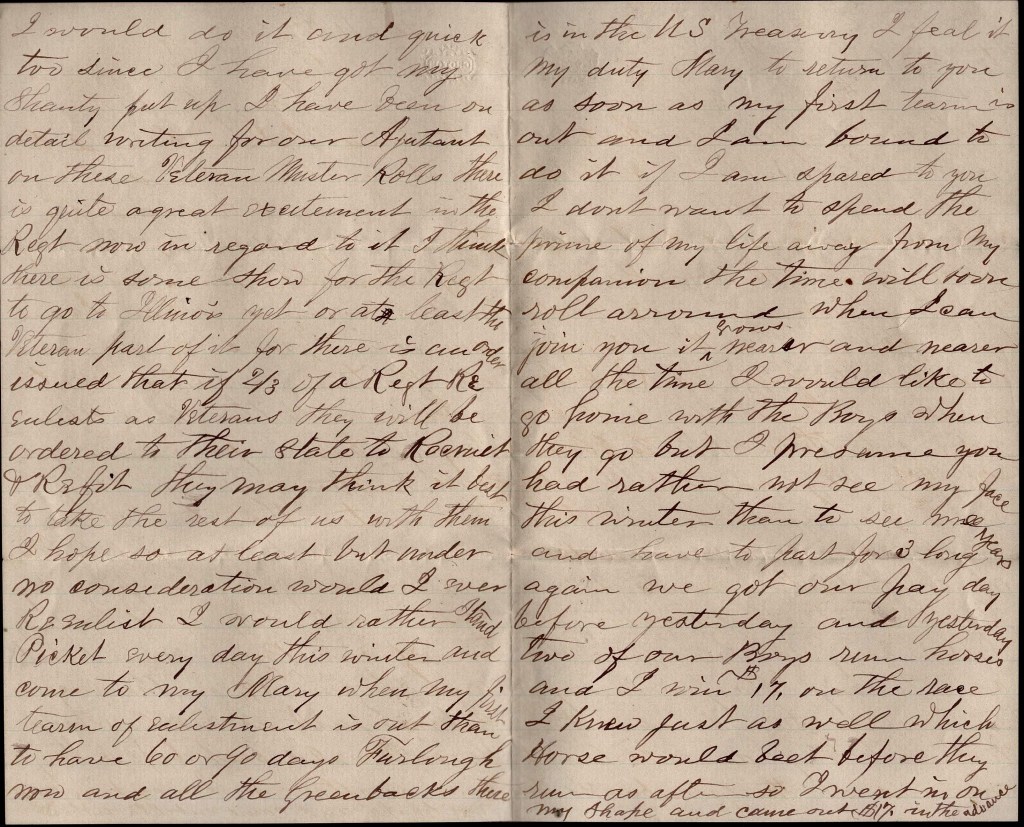 I would do it and quick
too since I have got my
Shanty put up I have been on
detail writing for our Ajutant
on these Veteran Muster Rolls there
is quite a great excitement in the
Regt now in regard to it I think
there is some show for the Regt
to go to Illinois yet or at least the
Veteran part of it for there is an order
issued that if 2/3 of a Regt Re
enlists as Veterans they will be
ordered to their State to Recruit
& Refit they may think it best
to take the rest of us with them
I hope so at least but under
no consideration would I ever
Reenlist I would rather Stand
Picket every day this winter and
come to my Mary when my first
tearm of enlistment is out than
to have 60 or 90 days Furlough
now and all the Greenbacks there
is in the US Treasury I feal it
my duty Mary to return to you
as soon as my first tearm is
out and I am bound to
do it if I am spared to you
I dont want to spend the
prime of my life away from my
companion the time will soon
roll arround when I can
join you it grows nearer and nearer
all the time I would like to
go home with the Boys when
they go but I presume you
had rather not see my face
this winter than to see me
and have to part for 3 long years
again we got our pay day
before yesterday and yesterday
two of our Boys run horses
and I win $17, on the race
I knew just as well which
Horse would beet before they
run as after so I went in on
my Shape and came out $17, in the advance